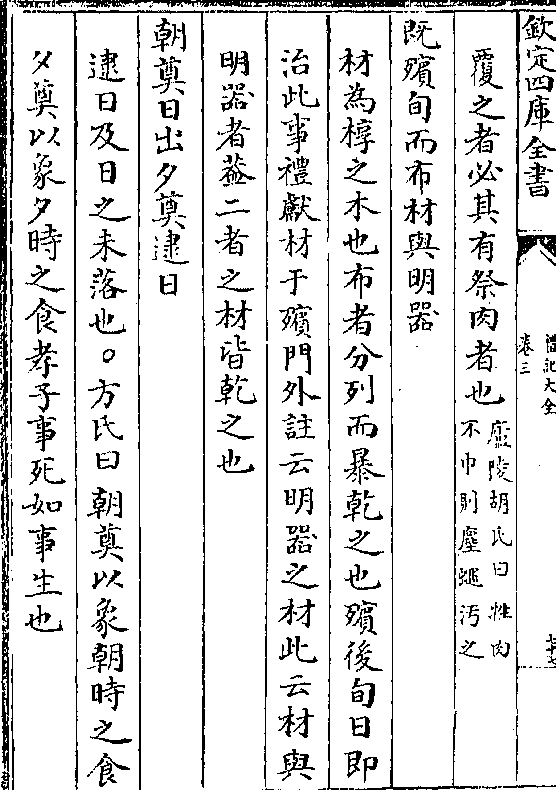 欽定四庫全書
禮記大全
卷三
覆之者必其有祭肉者也廬陵胡氏曰牲肉
不巾則塵蠅汚之
既殯旬而布材與明器
材為椁之木也布者分列而暴乾之也殯後旬日即
治此事禮獻材于殯門外註云明器之材此云材與
明器者葢二者之材皆乾之也
朝奠日出夕奠逮日
逮日及日之未落也○方氏曰朝奠以象朝時之食
夕奠以象夕時之食孝子事死如事生也